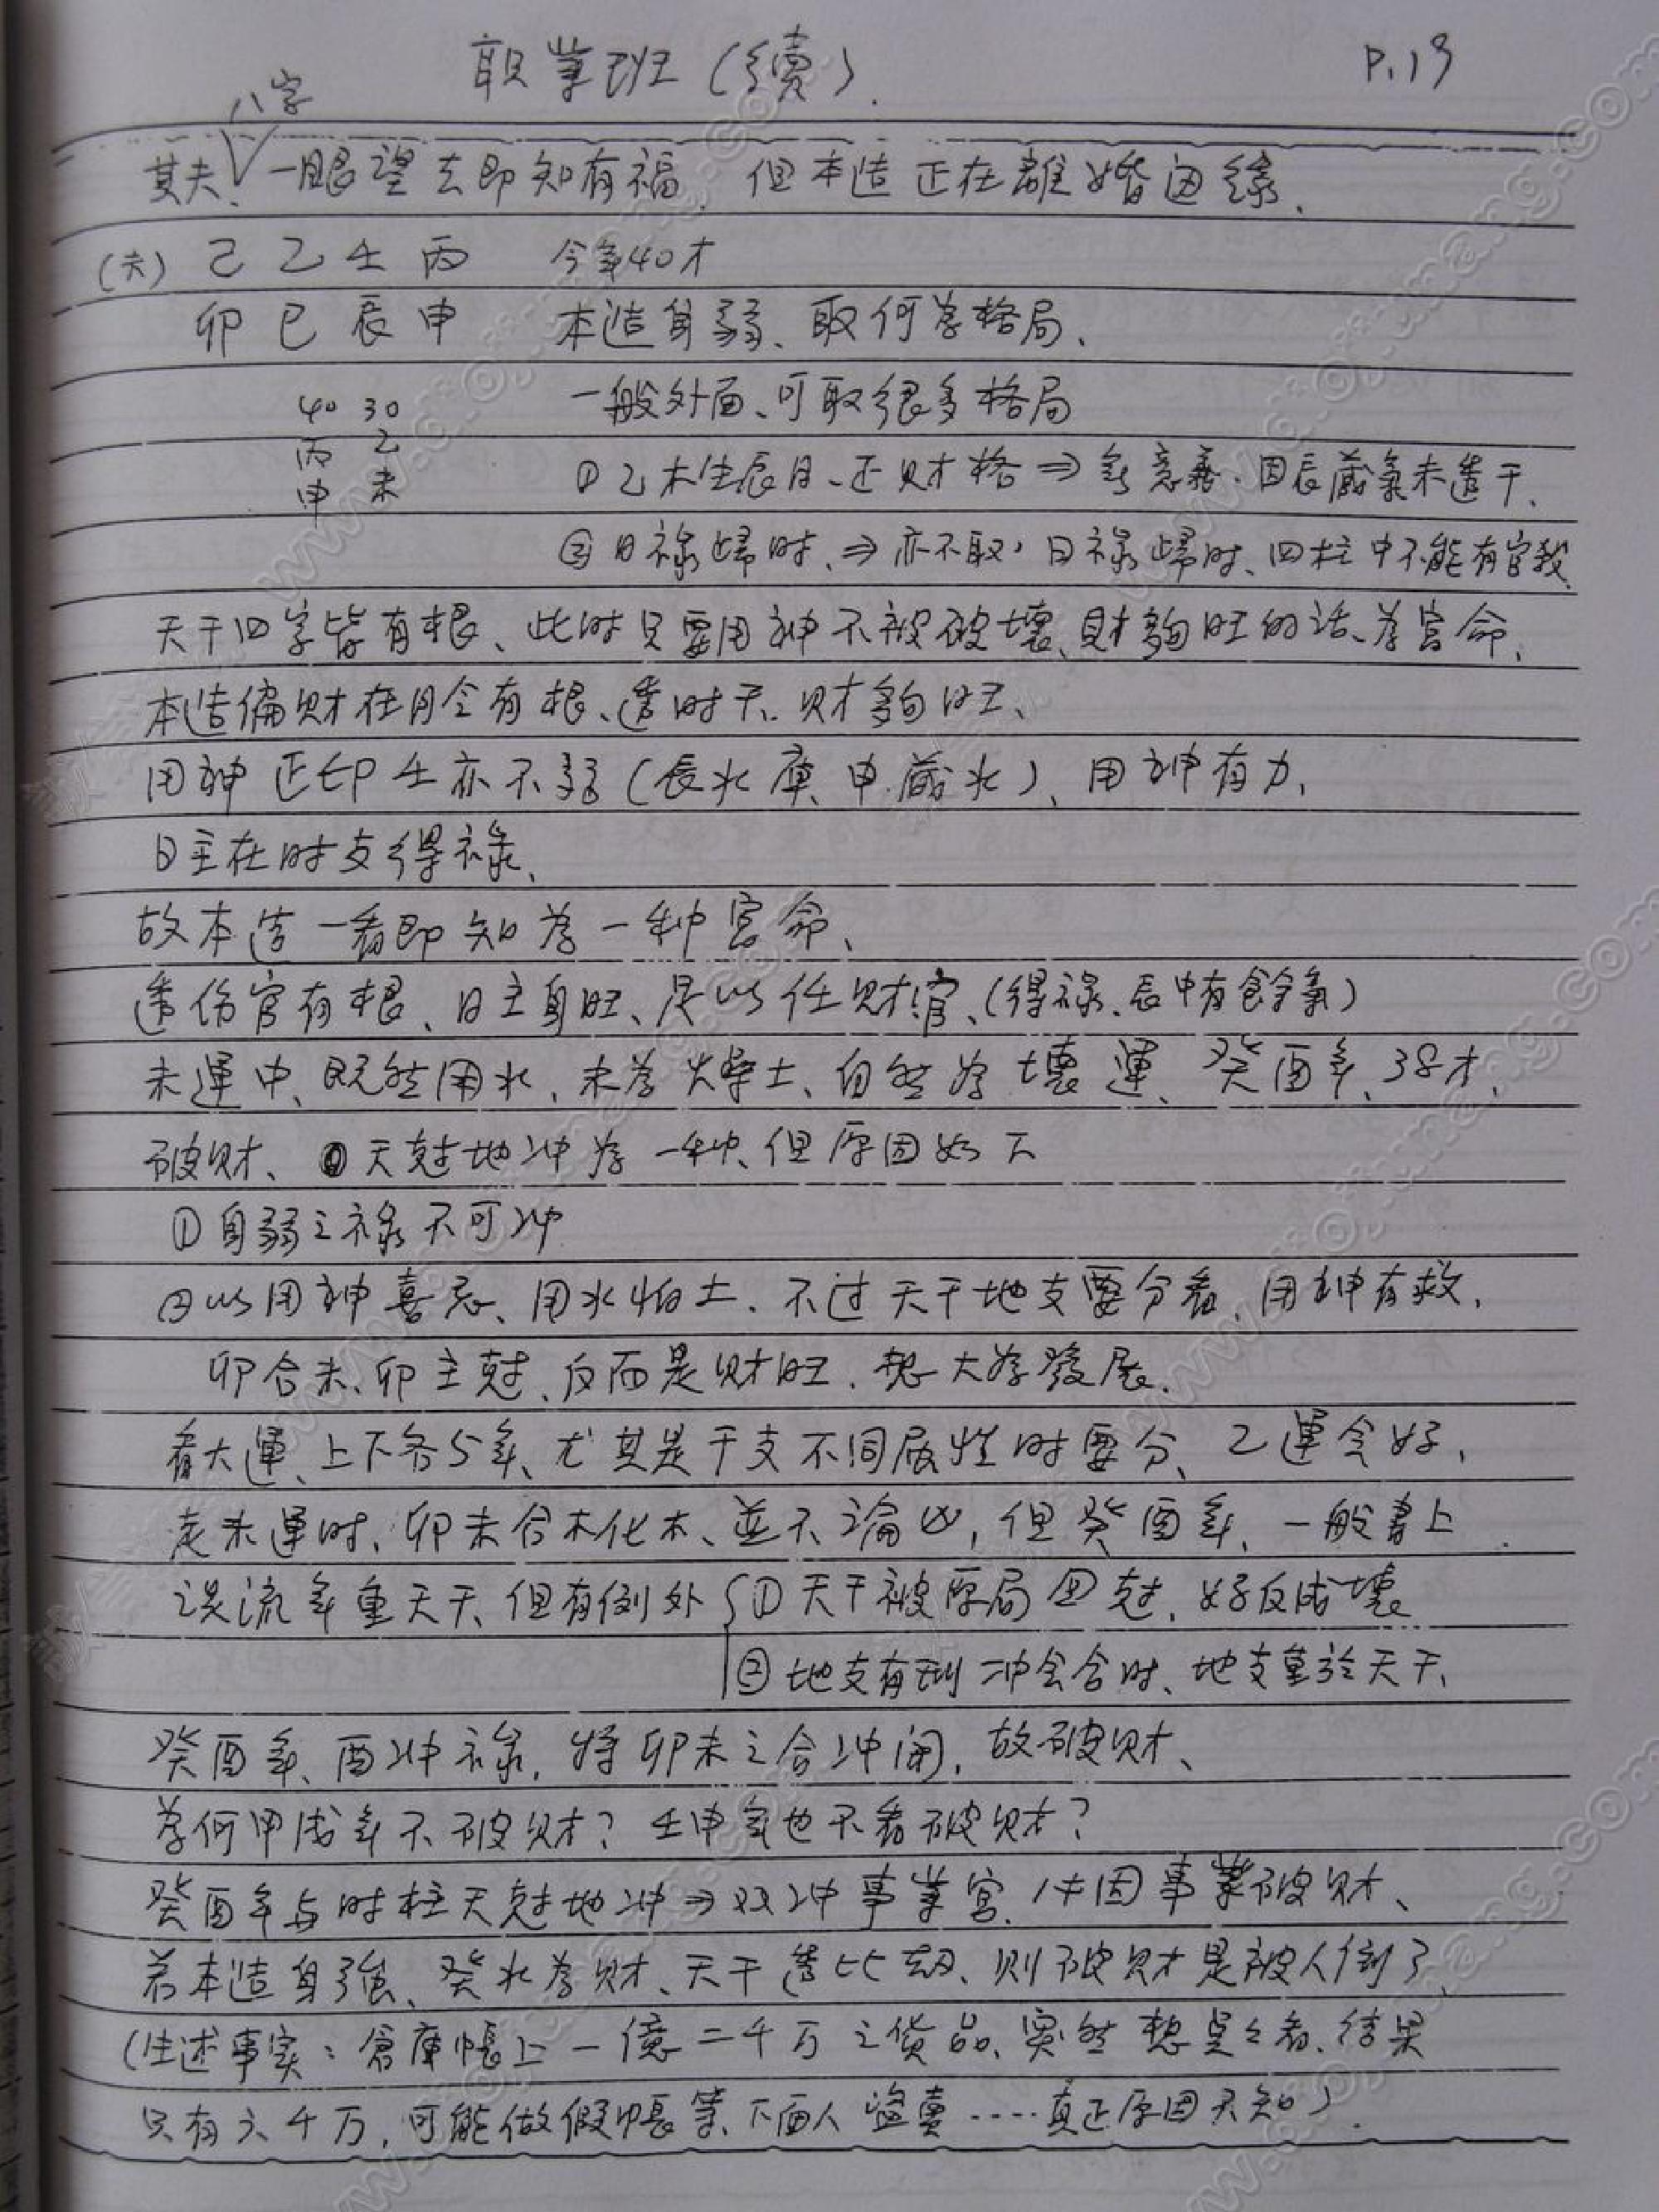 职業班(續).
P.19
八字
其夫、一眼望去即知有福,但本造正在離婚边缘.
(夫) 己乙壬丙 今年40才
卯巳辰申 本造身弱、取何为格局、
一般外面、可取很多格局
40 30
丙 乙
申 未
①乙木生辰月、正财格⇒無意義.因辰藏氣未透干、
②日禄歸时、⇒亦不取,日禄歸时、四柱中不能有官殺、
天干四字皆有根、此时只要用神不被破壞、财夠旺的话、为富命、
本造偏财在月令有根、透时干、财夠旺、
用神正印壬亦不弱(辰水庫、申藏水)、用神有力、
日主在时支得禄、
故本造一看即知为一种富命、
透伤官有根、日主身旺、足以任财官、(得禄、辰中有餘氣)
未運中、既然用水、未为火燥土、自然为壞運、癸酉年、38才、
破财、天尅地冲为一种、但原因如下
①身弱之禄不可冲
②以用神喜忌、用水怕土.不过天干地支要分看、用神有救、
卯合未、卯主尅、反而是财旺、想大为發展、
看大運、上下各5年、尤其是干支不同属性时要分、乙運会好、
走未運时、卯未合木化木、並不論凶,但癸酉年、一般書上
说流年重天干、但有例外 ①天干被原局回尅、好反成壞
②地支有刑冲会合时、地支重於天干、
癸酉年、酉冲禄,将卯未之合冲開,故破财、
为何甲戌年不破财?壬申年也不看破财?
癸酉年与时柱天尅地冲⇒双冲事業宫、体因事業破财、
若本造身強、癸水为财、天干透比劫、则破财是被人倒了、
(生述事实:倉庫帳上一億二千万之货品、突然想星々看、结果
只有六千万,可能做假帳等、下面人盗賣……真正原因不知).